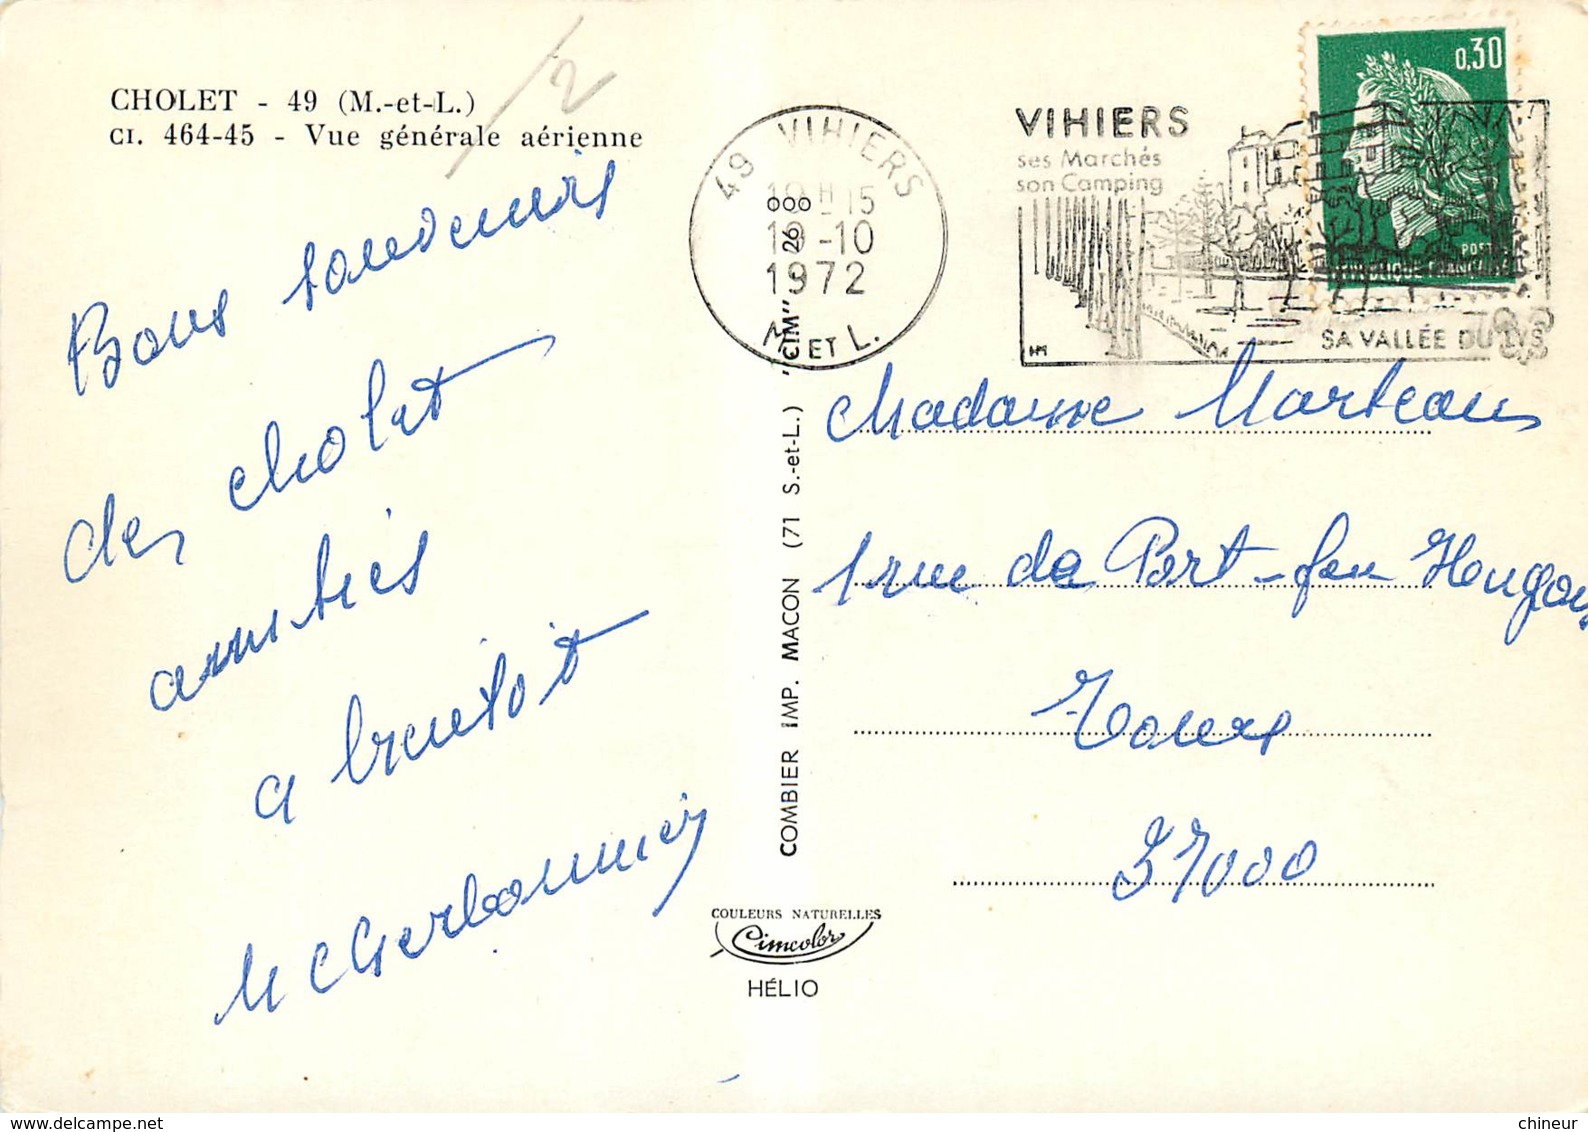 CHOLET - 49 (M.-et-L.)
CI. 464-45 - Vue générale aérienne
2
Bons souvenirs
de cholet
amitiés
a bientôt
49 VIHIERS
18H15
19-10
1972
M. ET L.
VIHIERS
ses Marchés
son Camping
SA VALLÉE DU LYS
HM
0,30
POSTES
REPUBLIQUE FRANCAISE
COMBIER IMP. MACON (71 S.-et-L.) "CIM"
Madame Marteau
1 rue de Port-feu Hougou
Tours
37000
COULEURS NATURELLES
Cimcolor
HÉLIO
chineur